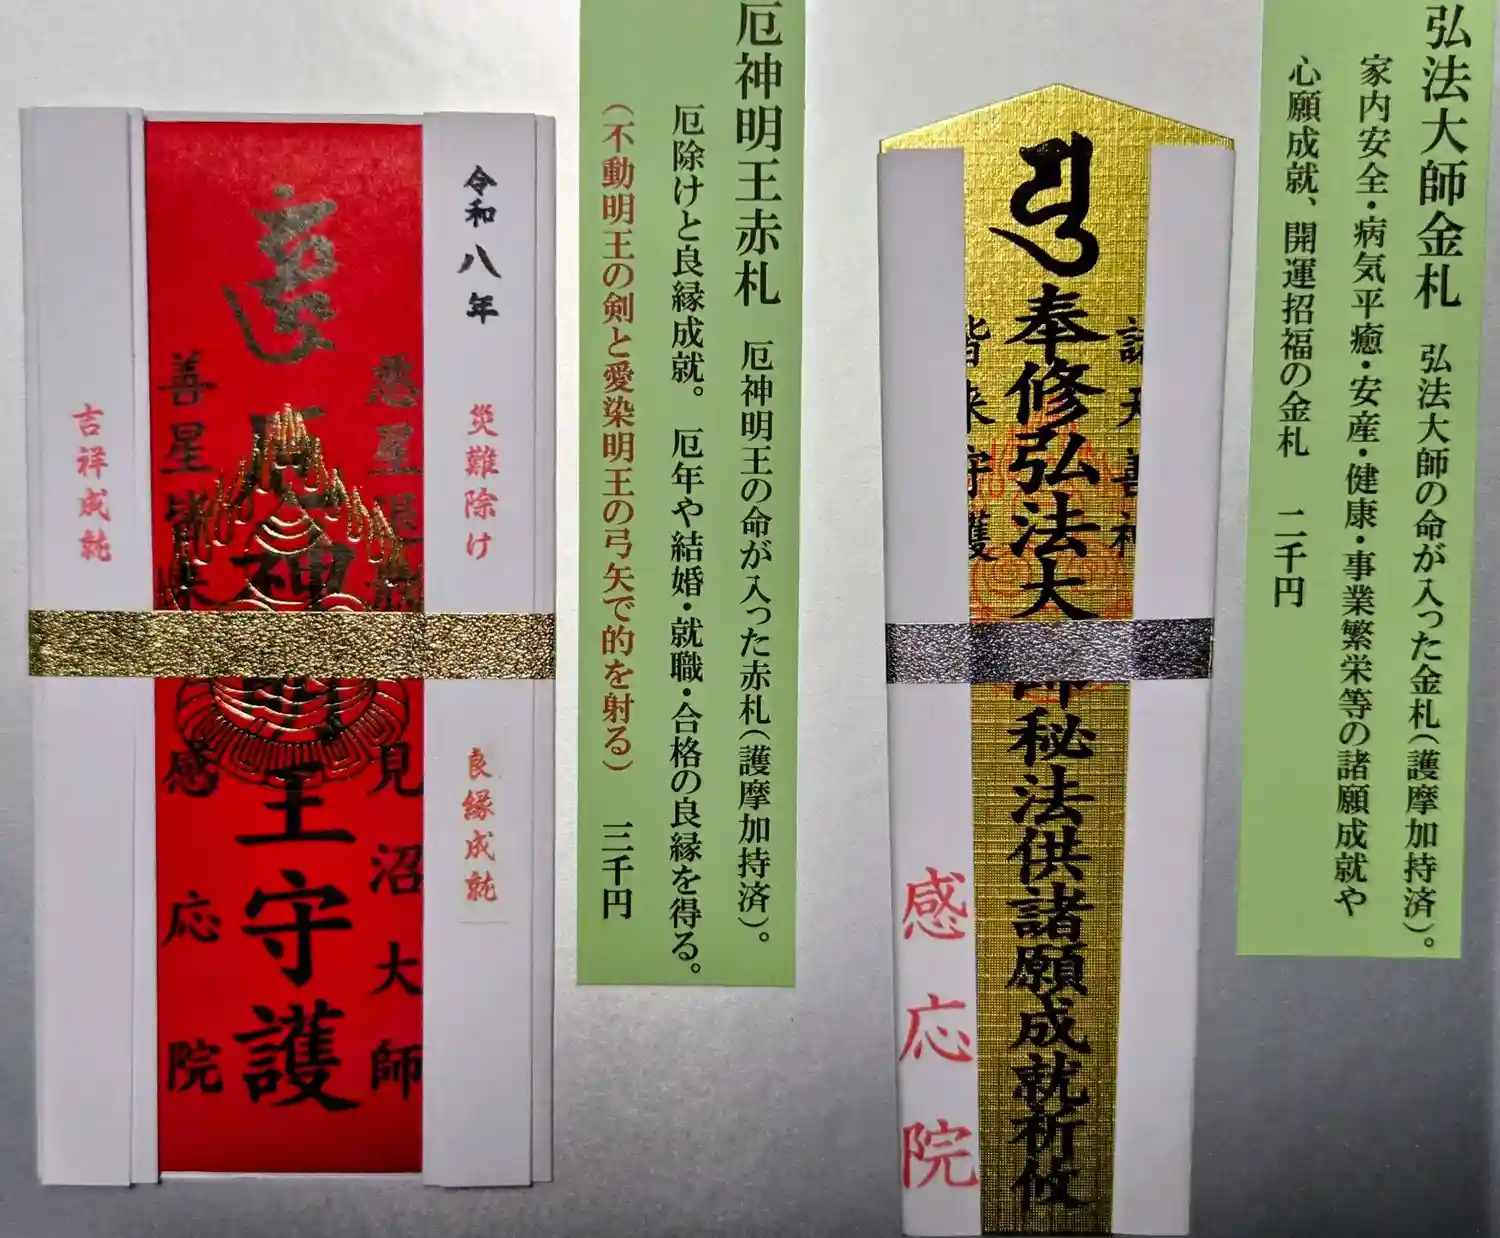 弘法大師金札 弘法大師の命が入った金札（護摩加持済）。
家内安全・病気平癒・安産・健康・事業繁栄等の諸願成就や
心願成就、開運招福の金札 二千円
諸天善神
奉修弘法大師秘法供諸願成就祈攸
皆来守護
感応院
厄神明王赤札 厄神明王の命が入った赤札（護摩加持済）。
厄除けと良縁成就。 厄年や結婚・就職・合格の良縁を得る。
（不動明王の剣と愛染明王の弓矢で的を射る） 三千円
令和八年
災難除け
良縁成就
悪星退散
見沼大師
厄神明王守護
善星皆来
感応院
吉祥成就